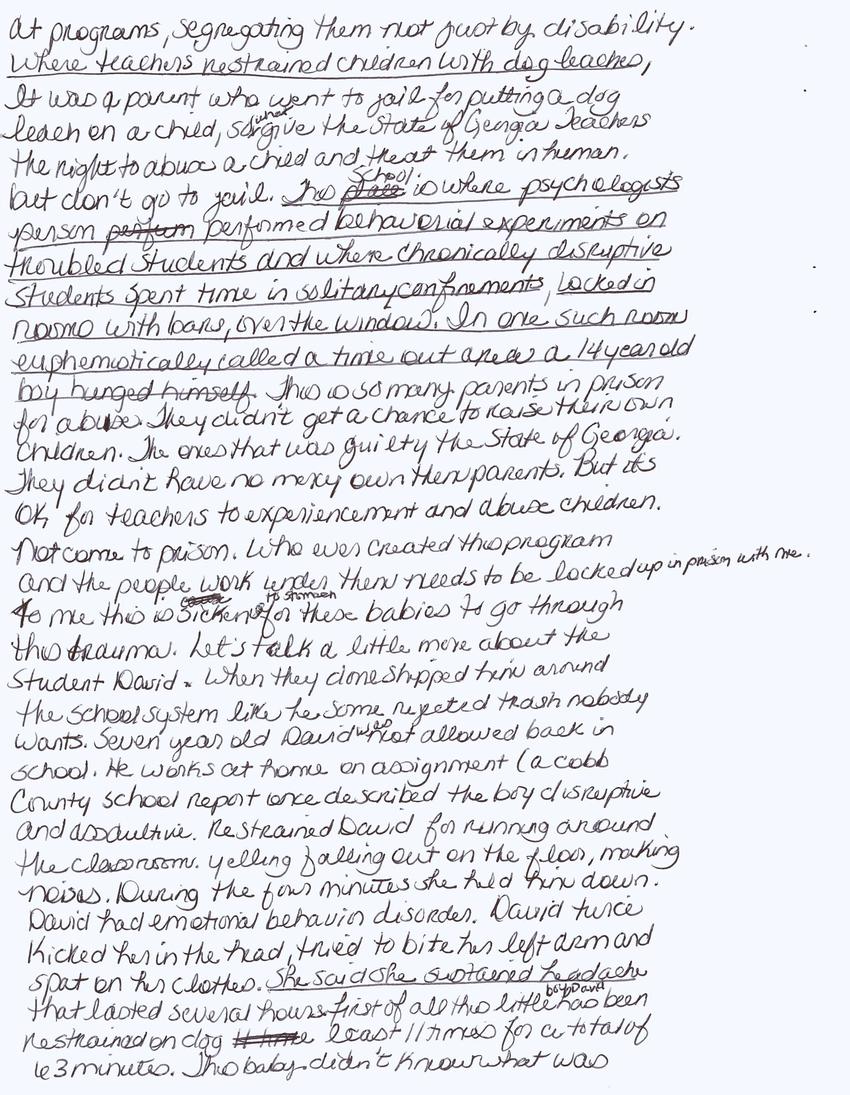 at programs, segregating them not just by disability.
Where teachers restrained children with dog leaches,
It was a parent who went to jail for putting a dog
leach on a child, so what give the State of Georgia Teachers
the right to abuse a child and treat them in human.
but don't go to jail. This School is where psychologists
person performed behavorial experiments on
troubled Students and where chronically disruptive
Students spent time in solitary confinements, Locked in
rooms with bars, over the window. In one such room
euphemistically called a time out area a 14 year old
boy hunged himself. This is so many parents in prison
for abuse. They didn't get a chance to raise their own
Children. The ones that was guilty the State of Georgia.
They didn't have no mercy own them parents. But it's
OK for teachers to experiencement and abuse children.
Not come to prison. Who ever created this program
and the people work under them needs to be locked up in prison with me.
To me this is sickens to stomach for these babies to go through
this trauma. Let's talk a little more about the
Student David. When they done shipped him around
the school system like he some rejected trash nobody
wants. Seven year old David was not allowed back in
school. He works at home on assignment (a cobb
County school report once described the boy disruptive
and assaultive. Restrained David for running around
the classroom. yelling falling out on the floor, making
noises. During the four minutes she held him down.
David had emotional behavior disorder. David twice
Kicked her in the head, tried to bite her left arm and
spat on her clothes. She said she sustained headache
that lasted several hours. first of all this little boy David has been
restrained on dog least 11 times for a total of
63 minutes. This baby didn't know what was